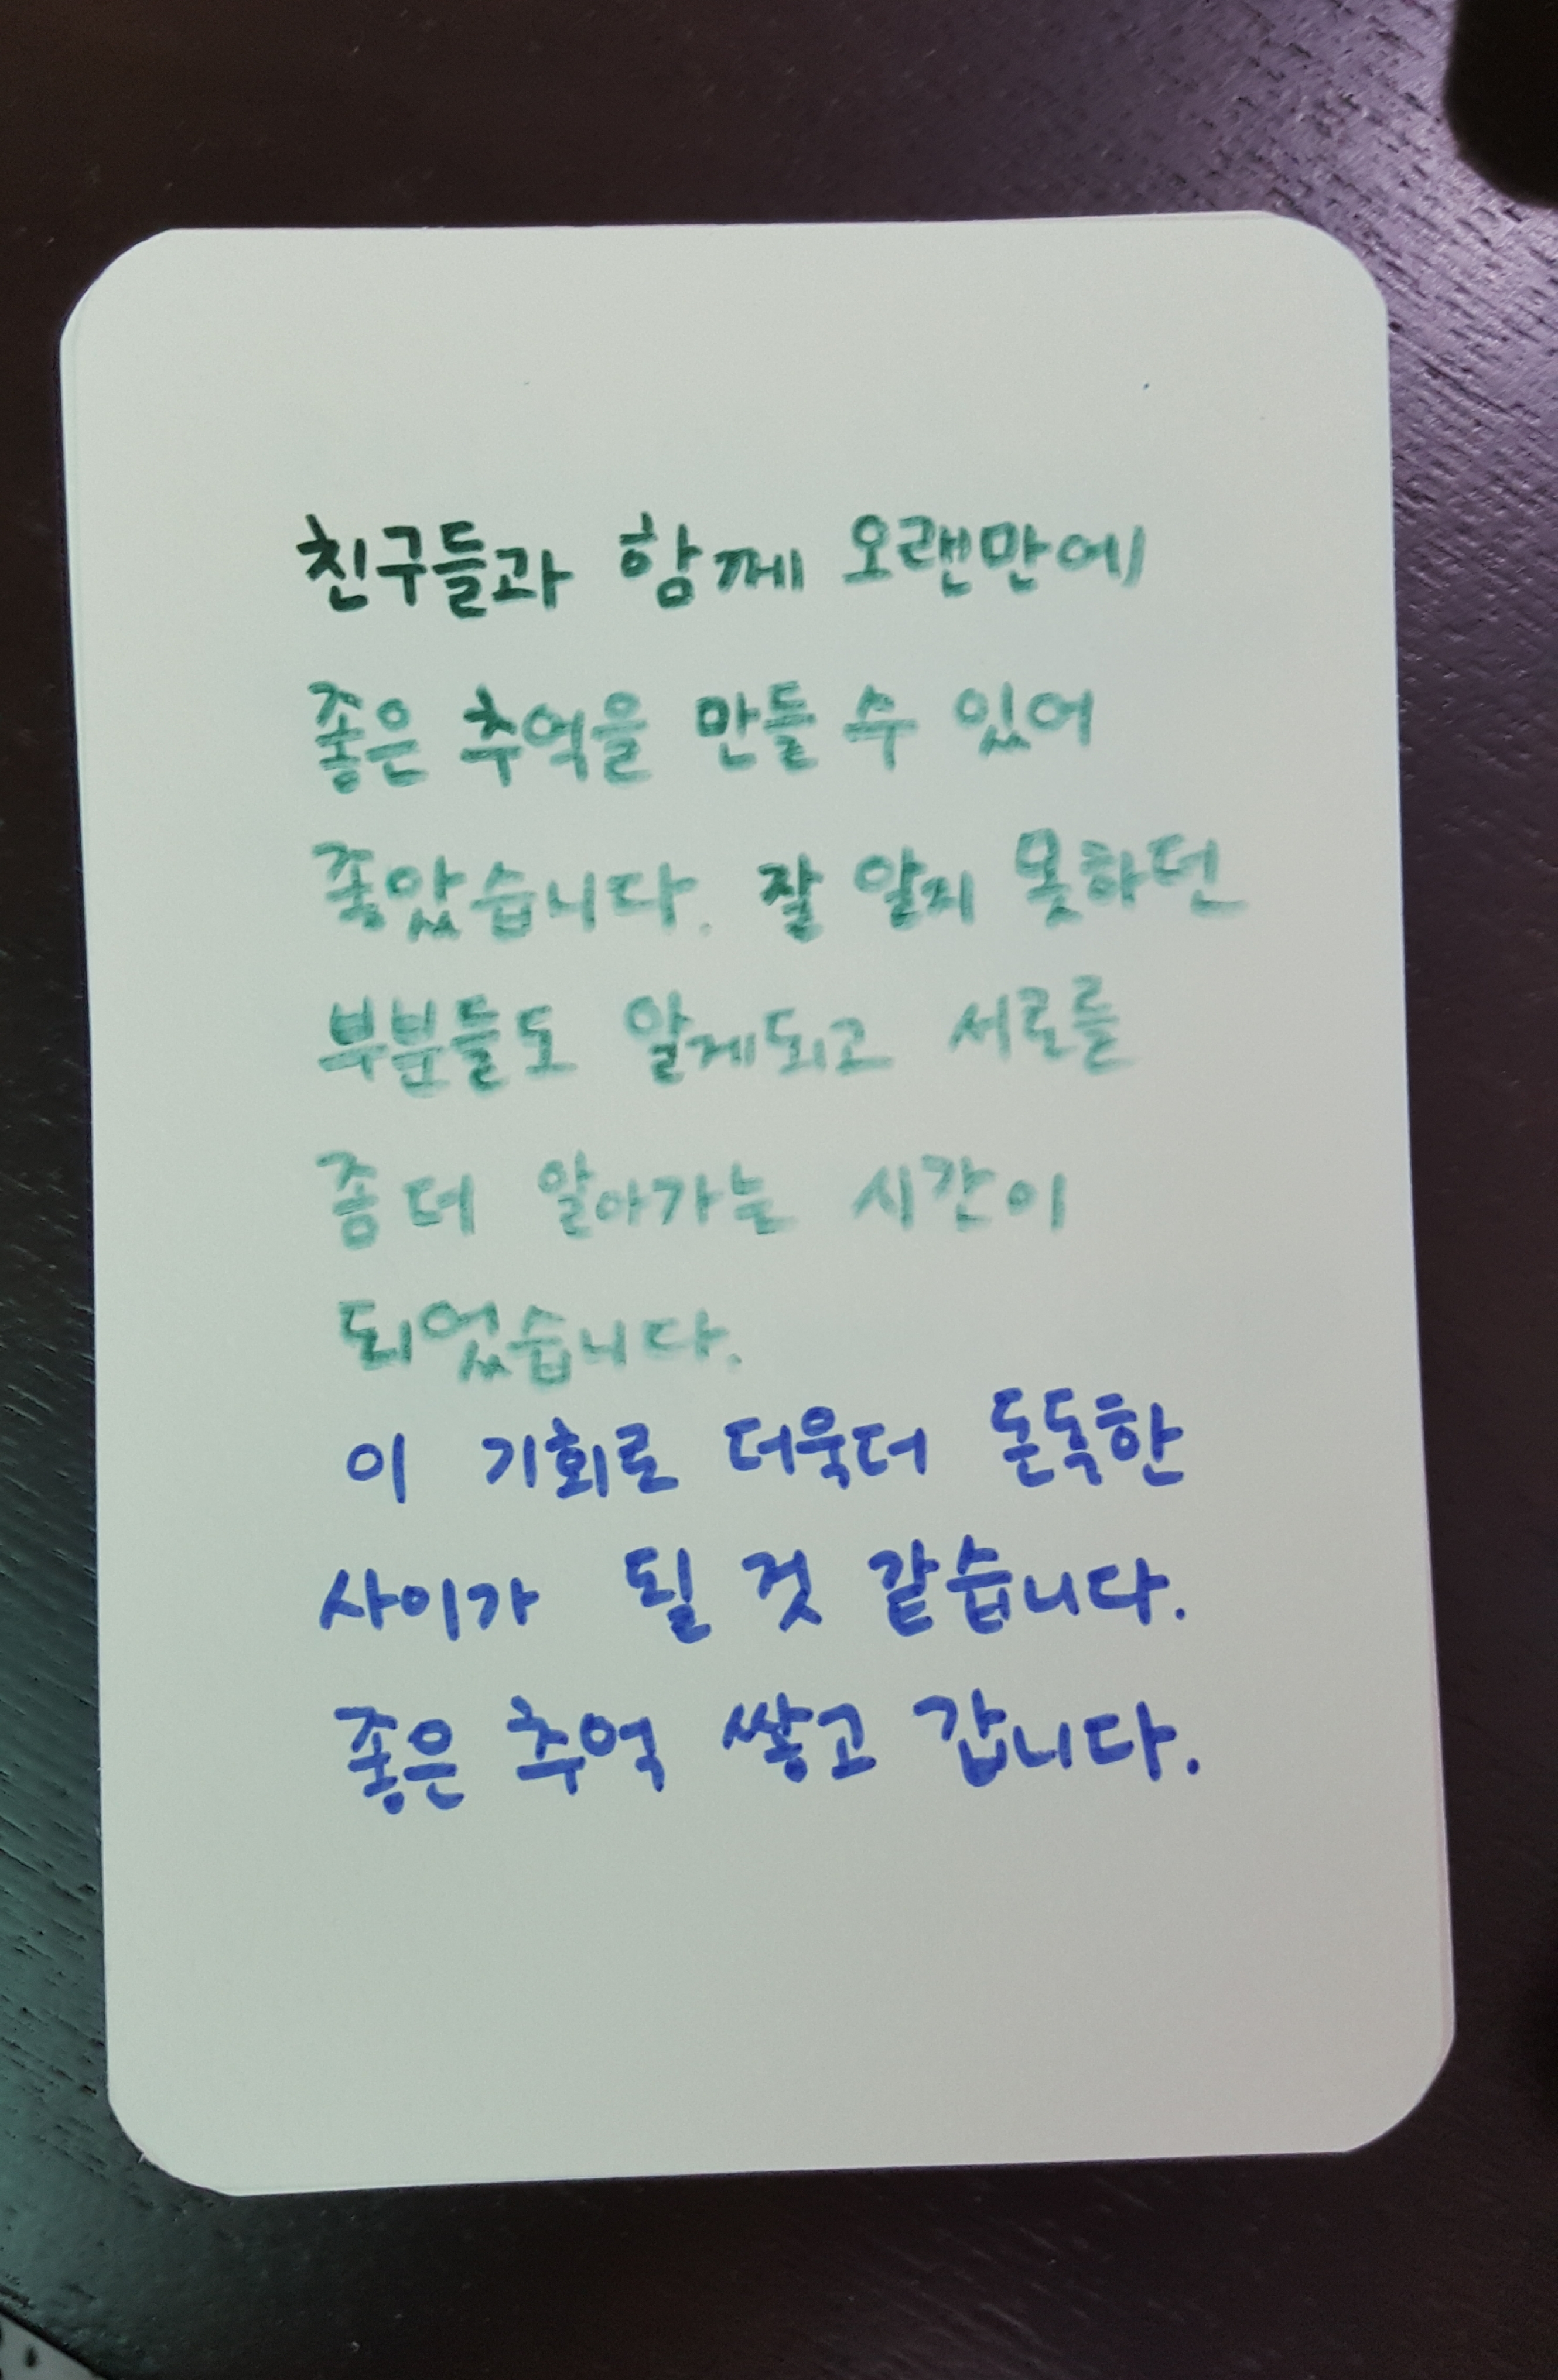 친구들과 함께 오랜만에
좋은 추억을 만들 수 있어
좋았습니다. 잘 알지 못하던
부분들도 알게되고 서로를
좀 더 알아가는 시간이
되었습니다.
이 기회로 더욱더 돈독한
사이가 될 것 같습니다.
좋은 추억 쌓고 갑니다.